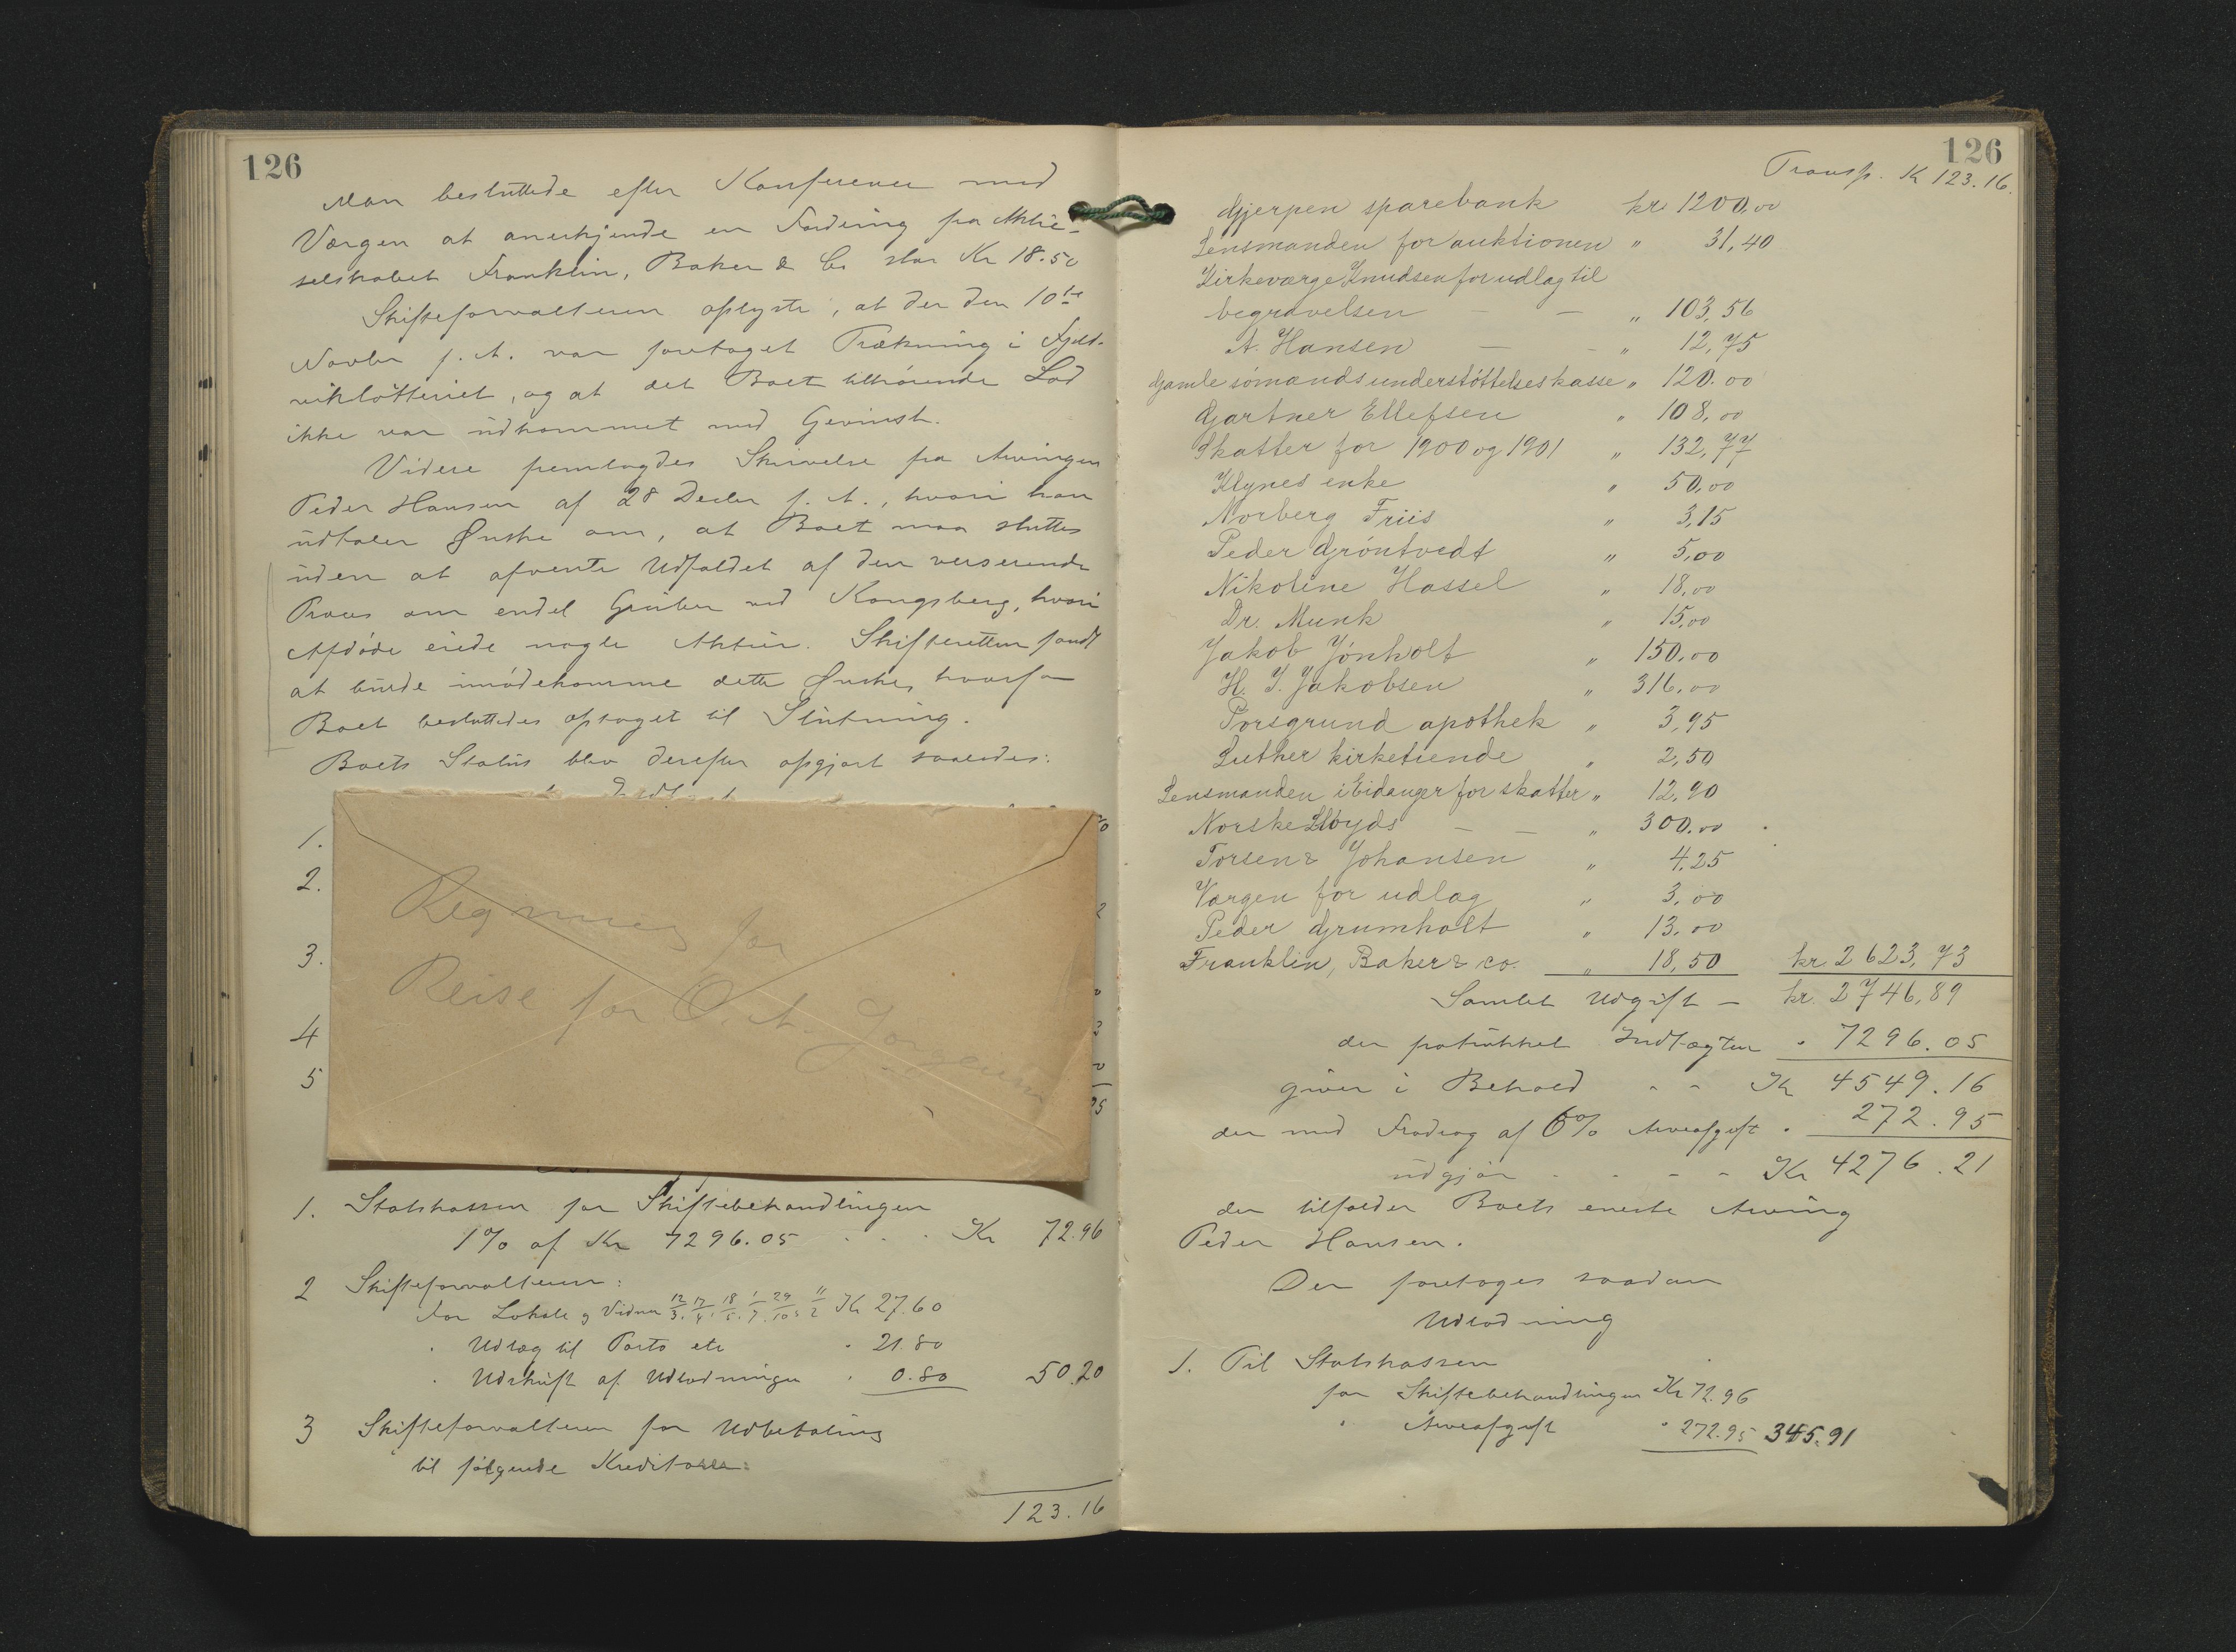 126
Man besluttede efter Konference med
Værgen at anerkjende en Fordring fra Aktie-
selskabet Franklin, Baker & Co stor Kr 18.50
Skifteforvalteren oplyste, at der den 10de
Novbr f. A. var foretaget Trækning i Fjeld-
viklotteriet, og at det Boet tilhørende Lod
ikke var udkommet med Gevinst.
Videre fremlagdes Skrivelse fra Arvingen
Peder Hansen af 28 Decbr f. A., hvori han
udtaler Ønske om, at Boet maa sluttes
uden at afvente Udfaldet af den verserende
Proces om endel Gruber ved Kongsberg, hvori
Afdøde eiede nogle Aktier. Skifteretten fandt
at burde imødekomme dette Ønske, hvorfor
Boet besluttedes optaget til Slutning.
Boets Status blev derefter opgjort saaledes:
1.
2.
3.
4
5
Regninger for
Reise for O. A.
1. Statskassen for Skiftebehandlingen
1% af Kr 7296.05 . . . Kr 72.96
2 Skifteforvalteren:
For Lokale og Vidner 12/3. 17/4. 18/5. 1/7. 29/10. 11/2 Kr 27.60
" Udlæg til Porto etc " 21.80
" Udskrift af Udlodningen " 0.80 50.20
3 Skifteforvalteren for Udbetaling
til følgende Kreditorer:
123.16
126
Transp. Kr 123.16.
Gjerpen sparebank kr. 1200,00
Lensmanden for auktionen " 31,40
Kirkeværge Knudsen for udlæg til
begravelsen — — " 103,56
A. Hansen — - " 12,75
Gamle sömandsunderstöttelseskasse " 120.00
Gartner Ellefsen " 108,00
Skatter for 1900 og 1901 " 132,77
Klynes enke " 50,00
Norberg Friis " 3,15
Peder Gröntvedt " 5,00
Nikoline Hassel " 18,00
Dr. Munk " 15,00
Jakob Jönholt " 150,00
H. J. Jakobsen " 316,00
Porsgrund apothek " 3,95
Luther kirketiende " 2,50
Lensmanden i Eidanger for skatter " 12,90
Norske Lloyds — — " 300.00
Torsen & Johansen " 4,25
Værgen for udlæg " 3,00
Peder Grumholt " 13,00
Franklin, Baker & co. " 18,50 kr 2623,73
Samlet Udgift — kr. 2746,89
der fratrukket Indtægten " 7296.05
giver i Behold - - Kr 4549.16
der med Fradrag af 6% Arveafgift " 272.95
udgjør - - - - Kr 4276.21
der tilfalder Boets eneste Arving
Peder Hansen.
Der foretoges saadan
Udlodning
1. Til Statskassen
for Skiftebehandlingen Kr 72.96
" Arveafgift " 272.95 345.91